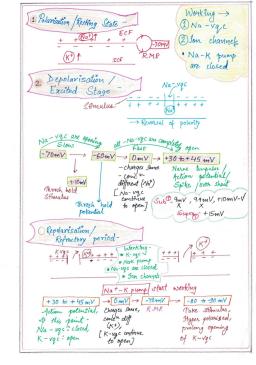 1. Polarisation / Resting State -
Working →
① Na-vgc
② Ion channels
• Na-K pump
are closed
Na+
ECF
K+
ICF
-70mV
R.M.P
2. Depolarisation /
Excited Stage
Stimulus
Na-vgc
→ Reversal of polarity
Na-vgc are opening
Slow
all-Na-vgc are completely
Fast
open
-70mV
-60mV
0mV
+30 to +45mV
+10mV
Thresh hold
Stimulus
Thresh hold
potential
- charges same
different (Na+)
[Na-vgc
continue
to open]
Nerve Impulse /
Action potential /
Spike / over shoot
+15mV
Repolarisation /
Refractory period-
Working -
• K-vgc
• NaK pump
• Na-vgc are closed
• Ion charges
K+
Na+-K pump start working
+30 to 45mV
0mV
-70mV
-80 to -90mV
Action potential,
@ this point-
Na-vgc - closed
K-vgc - open
Charges same,
conc. diff
(K+),
[K-vgc continue
to open]
R.M.P
Hyper polarised,
prolong opening
of K-vgc